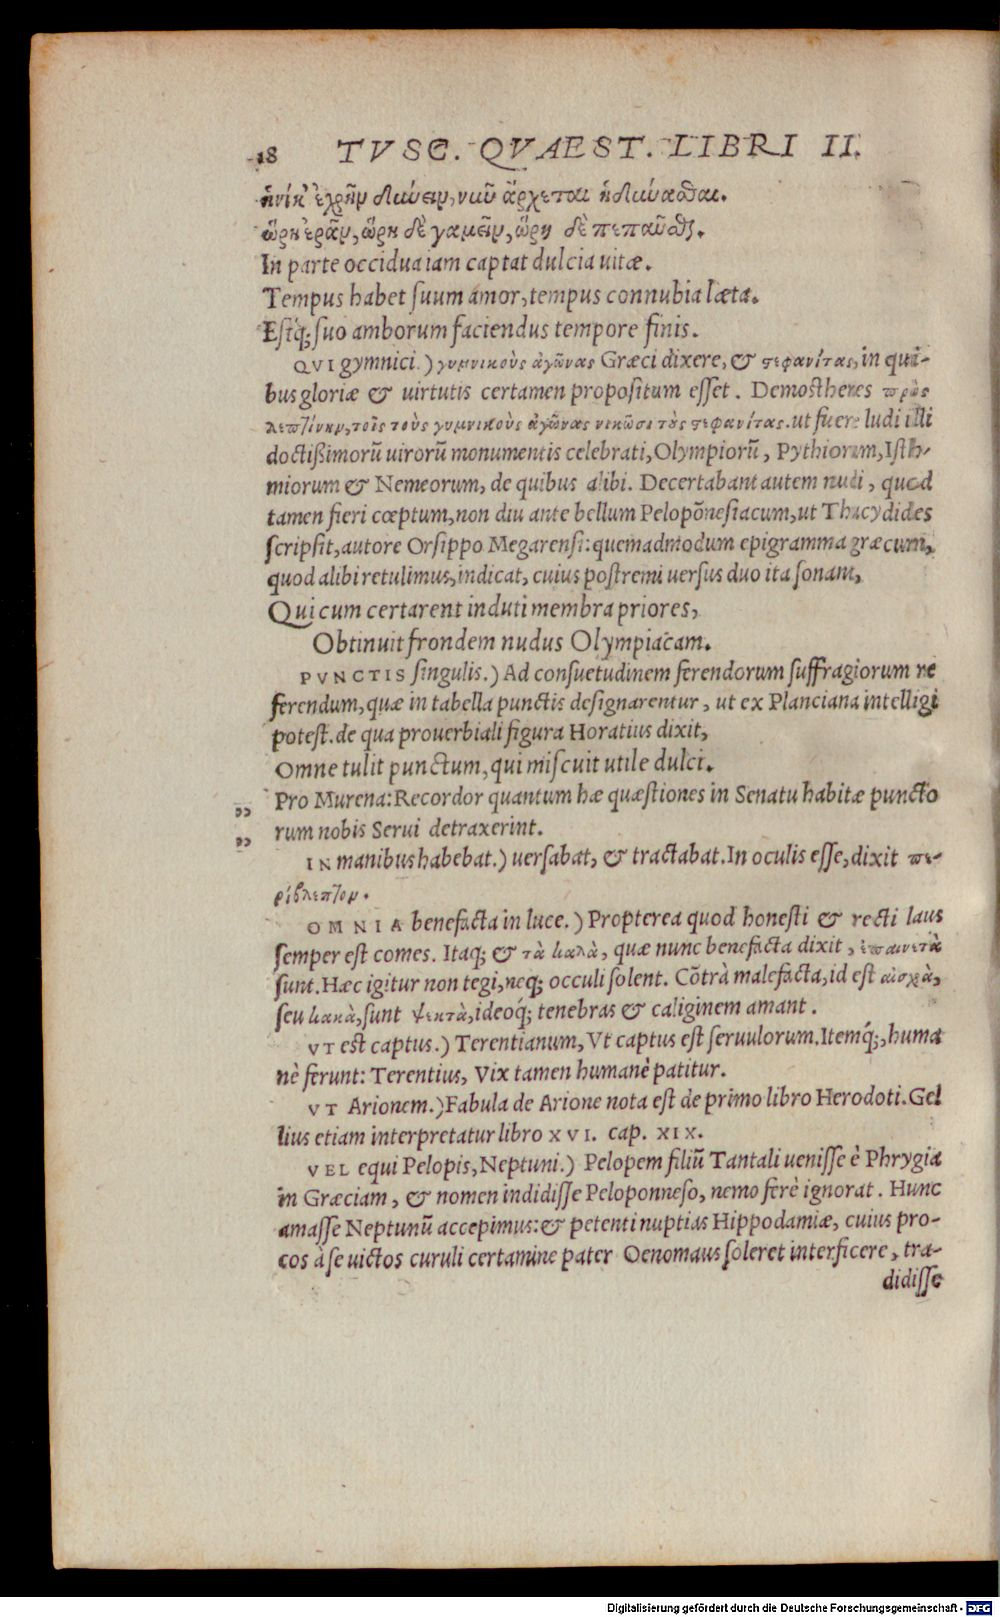 18 TVSC. QVAEST. LIBRI II.
ἡνίκ' ἐχρῆν δύνειν, νῦν ἄρχεται ἡδύνασθαι.
ὥρη ἐρᾶν, ὥρη δὲ γαμεῖν, ὥρη δὲ πεπαῦσθαι.
In parte occidua iam captat dulcia uitæ.
Tempus habet suum amor, tempus connubia læta.
Estq́; suo amborum faciendus tempore finis.
QVI gymnici.) γυμνικοὺς ἀγῶνας Græci dixere, & στεφανίτας, in qui-
bus gloriæ & uirtutis certamen propositum esset. Demosthenes πρὸς
λεπτίνην, τοῖς τοὺς γυμνικοὺς ἀγῶνας νικῶσι τοὺς στεφανίτας. ut fuere ludi illi
doctißimorū uirorū monumentis celebrati, Olympiorū, Pythiorum, Isth-
miorum & Nemeorum, de quibus alibi. Decertabant autem nudi, quod
tamen fieri cœptum, non diu ante bellum Pelopōnesiacum, ut Thucydides
scripsit, autore Orsippo Megarensi: quemadmodum epigramma græcum,
quod alibi retulimus, indicat, cuius postremi uersus duo ita sonant,
Qui cum certarent induti membra priores,
Obtinuit frondem nudus Olympiacam.
PVNCTIS singulis.) Ad consuetudinem ferendorum suffragiorum re
ferendum, quæ in tabella punctis designarentur, ut ex Planciana intelligi
potest. de qua prouerbiali figura Horatius dixit,
Omne tulit punctum, qui miscuit utile dulci.
„ Pro Murena: Recordor quantum hæ quæstiones in Senatu habitæ puncto
„ rum nobis Serui detraxerint.
IN manibus habebat.) uersabat, & tractabat. In oculis esse, dixit πε-
ρίβλεπτον.
OMNIA benefacta in luce.) Propterea quod honesti & recti laus
semper est comes. Itaq; & τὰ καλὰ, quæ nunc benefacta dixit, ἐπαινετὰ
sunt. Hæc igitur non tegi, neq; occuli solent. Cōtrà malefacta, id est αἰσχρὰ,
seu κακὰ, sunt ψεκτὰ, ideoq́; tenebras & caliginem amant.
VT est captus.) Terentianum, Vt captus est seruulorum. Itemq́;, huma
nè ferunt: Terentius, Vix tamen humanè patitur.
VT Arionem.) Fabula de Arione nota est de primo libro Herodoti. Gel
lius etiam interpretatur libro XVI. cap. XIX.
VEL equi Pelopis, Neptuni.) Pelopem filiū Tantali uenisse è Phrygia
in Græciam, & nomen indidisse Peloponneso, nemo ferè ignorat. Hunc
amasse Neptunū accepimus: & petenti nuptias Hippodamiæ, cuius pro-
cos à se uictos curuli certamine pater Oenomaus soleret interficere, tra-
didisse
Digitalisierung gefördert durch die Deutsche Forschungsgemeinschaft - DFG